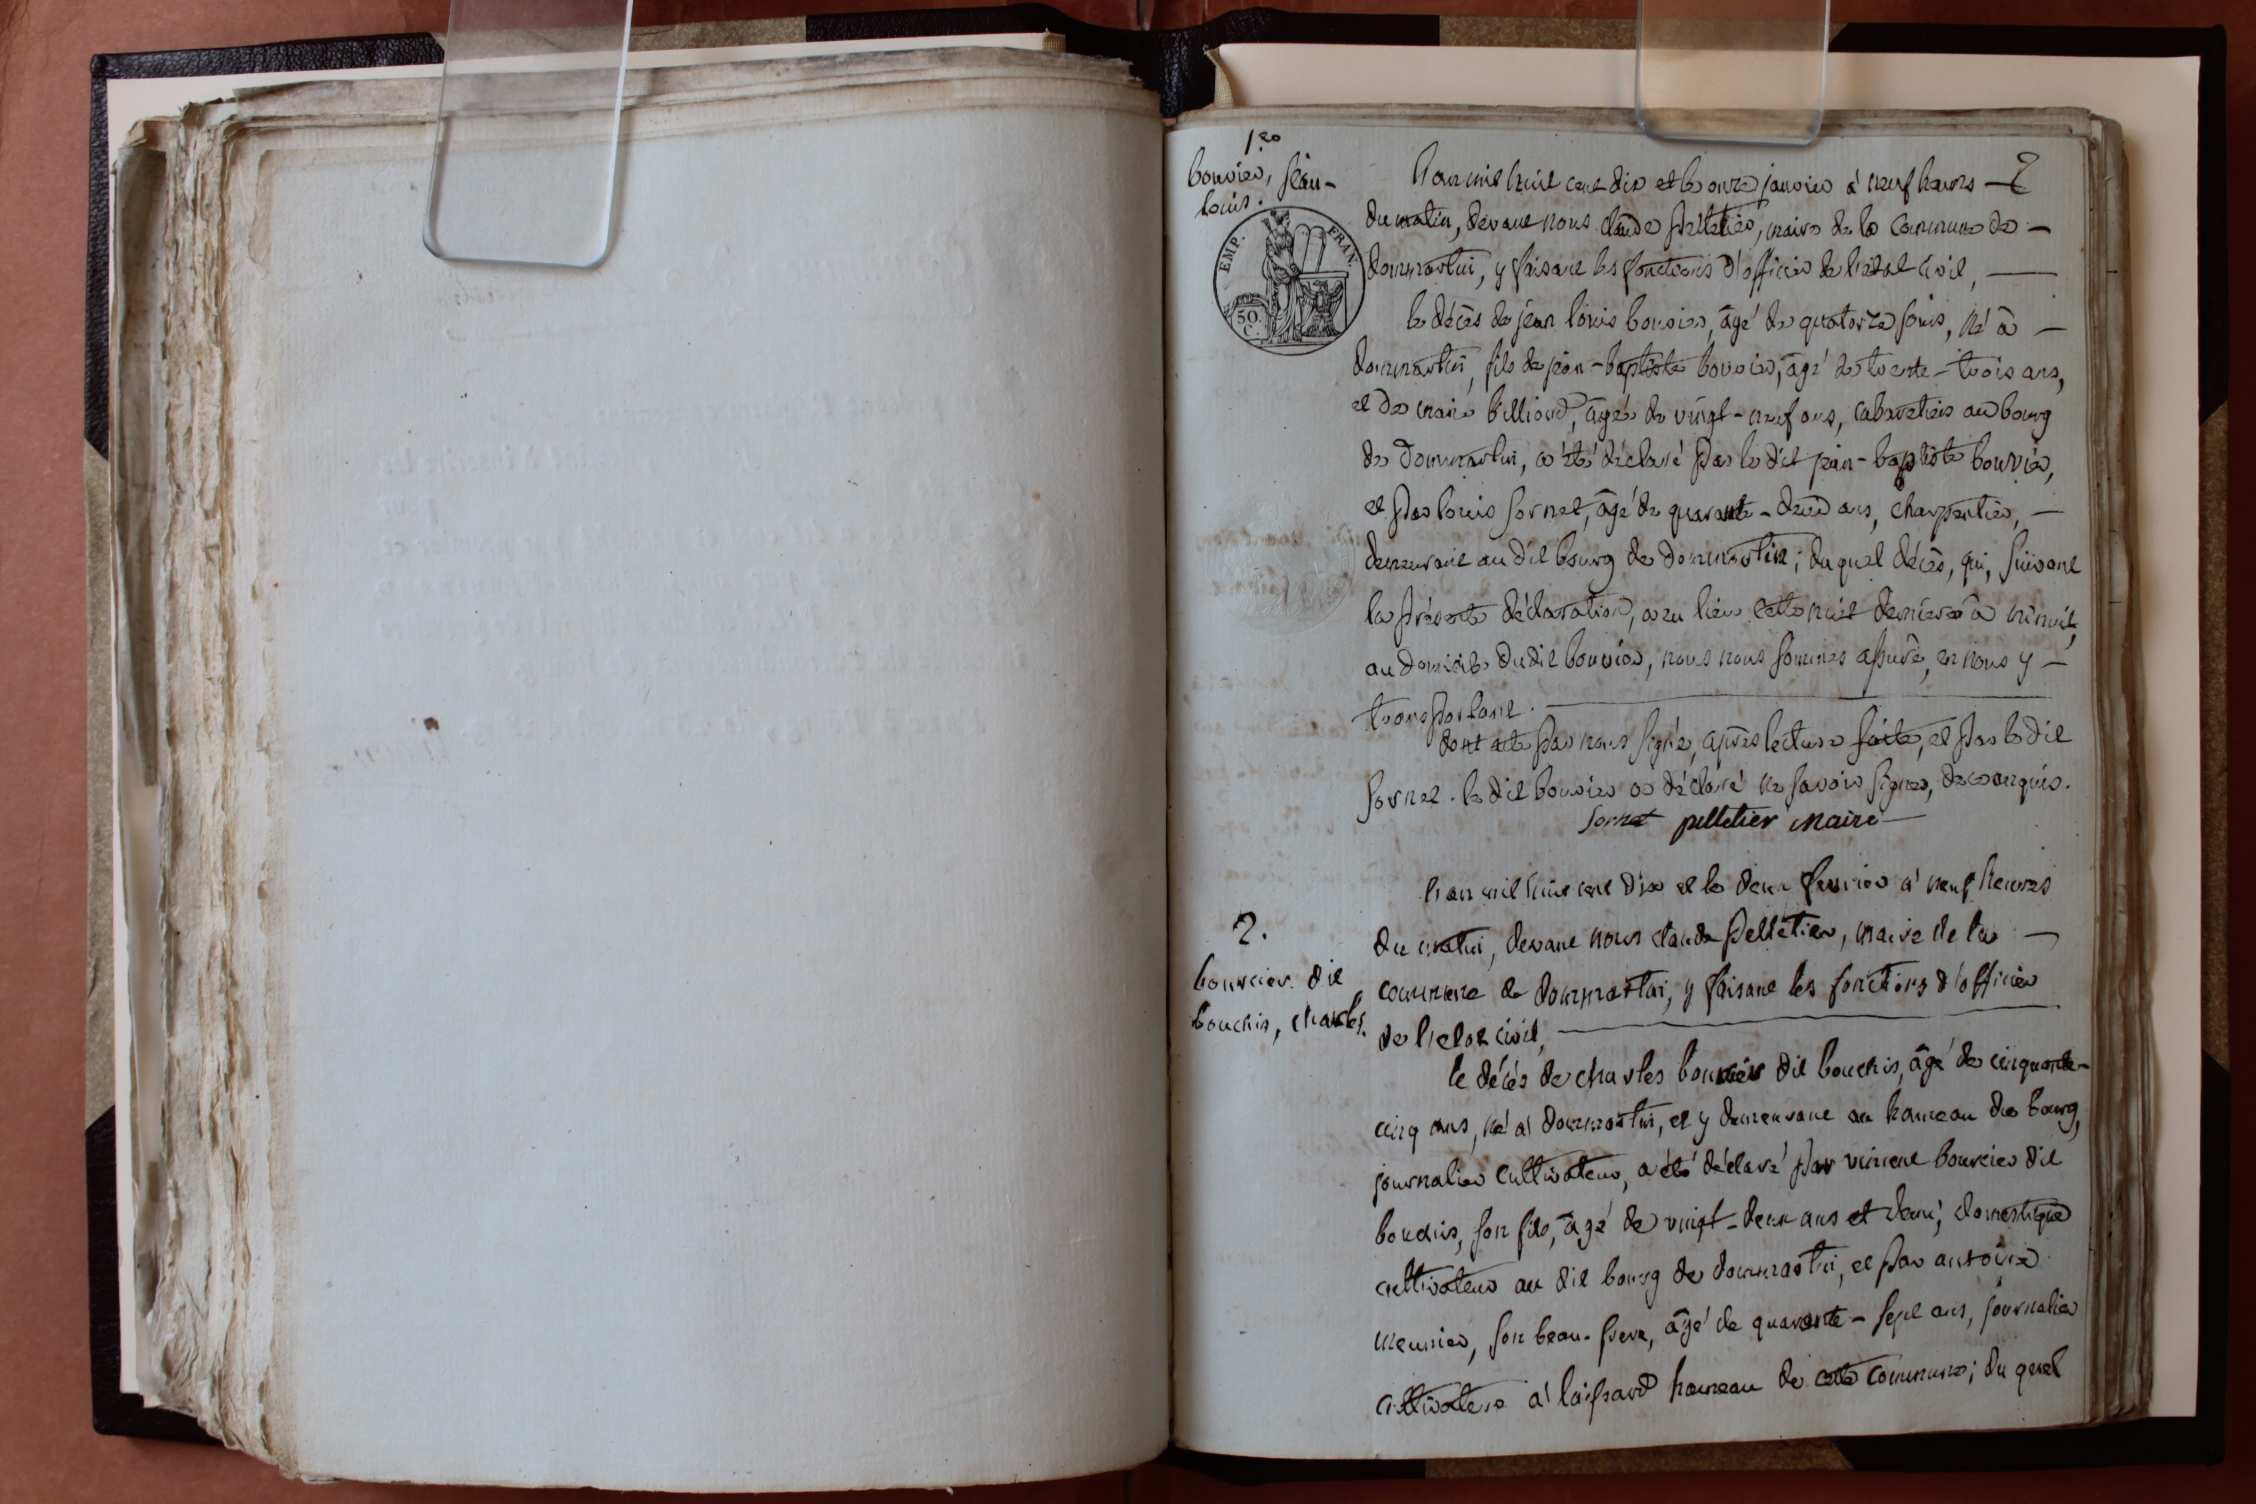 1.ro
bouvier, jean-
louis.
EMP. FRAN.
50 C.
2
l'an mil huit cent dix et le onze janvier à neuf heures
du matin, devant nous claude pelletier, maire de la commune de
dommartin, y faisant les fonctions d'officier de l'état civil,
le décès de jean louis bouvier, âgé de quatorze jours, né à
dommartin, fils de jean-baptiste bouvier, âgé de trente-trois ans,
et de marie billioud, âgée de vingt-neuf ans, cabaretiers au bourg
de dommartin, a été déclaré par le dit jean-baptiste bouvier,
et par louis sornet, âgé de quarante-deux ans, charpentier,
demeurant au dit bourg de dommartin; du quel décès, qui, suivant
la présente déclaration, a eu lieu cette nuit dernière à minuit,
au domicile du dit bouvier, nous nous sommes assuré, en nous y
transportant.
dont acte par nous signé, après lecture faite, et par le dit
sornet. le dit bouvier a déclaré ne savoir signer, de ce enquis.
Sornet pelletier maire
2.
bourcier dit
bouchis, charles.
l'an mil huit cent dix et le deux fevrier à neuf heures
du matin, devant nous claude pelletier, maire de la
commune de dommartin, y faisant les fonctions d'officier
de l'etat civil,
le décès de charles bourcier dit bouchis, âgé de cinquante-
cinq ans, né à dommartin, et y demeurant au hameau du bourg,
journalier cultivateur, a été déclaré par vincent bourcier dit
bouchis, son fils, âgé de vingt-deux ans et demi, domestique
cultivateur au dit bourg de dommartin, et par antoine
meunier, son beau-frere, âgé de quarante-sept ans, journalier
cultivateur à laissard hameau de cette commune; du quel